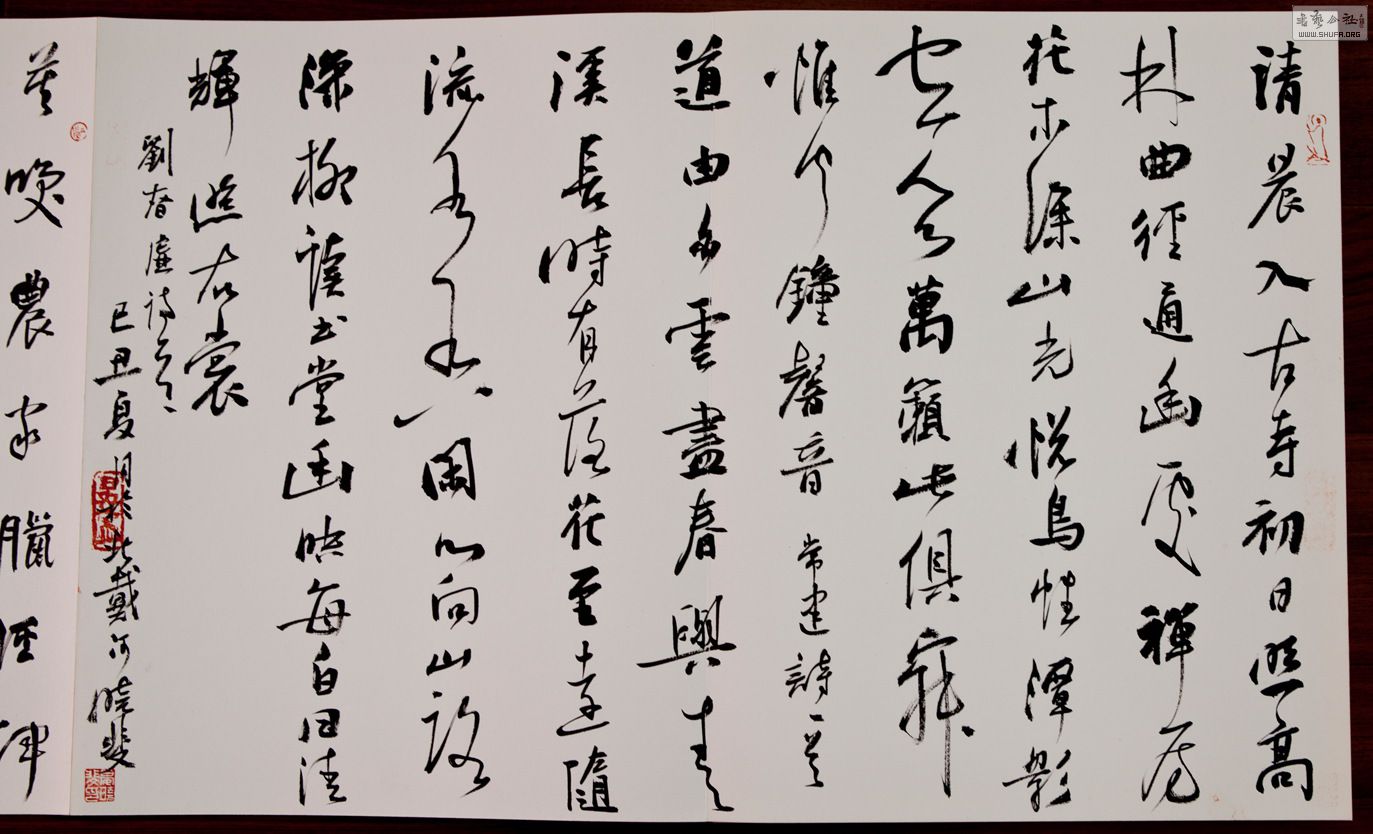 清晨入古寺初日照高
林曲徑通幽處禪房
花木深山光悦鳥性潭影
空人心萬籟此俱寂
惟聞鐘磬音 常建詩一首
道由白雲盡春與青
溪長時有落花至遠隨
流水香閑門向山路
深柳讀書堂幽映每白日清
輝照衣裳
劉眘虛詩一首
己丑夏月於北戴河曉斐
莫咲農家臘酒渾
書藝公社
WWW.SHUFA.ORG